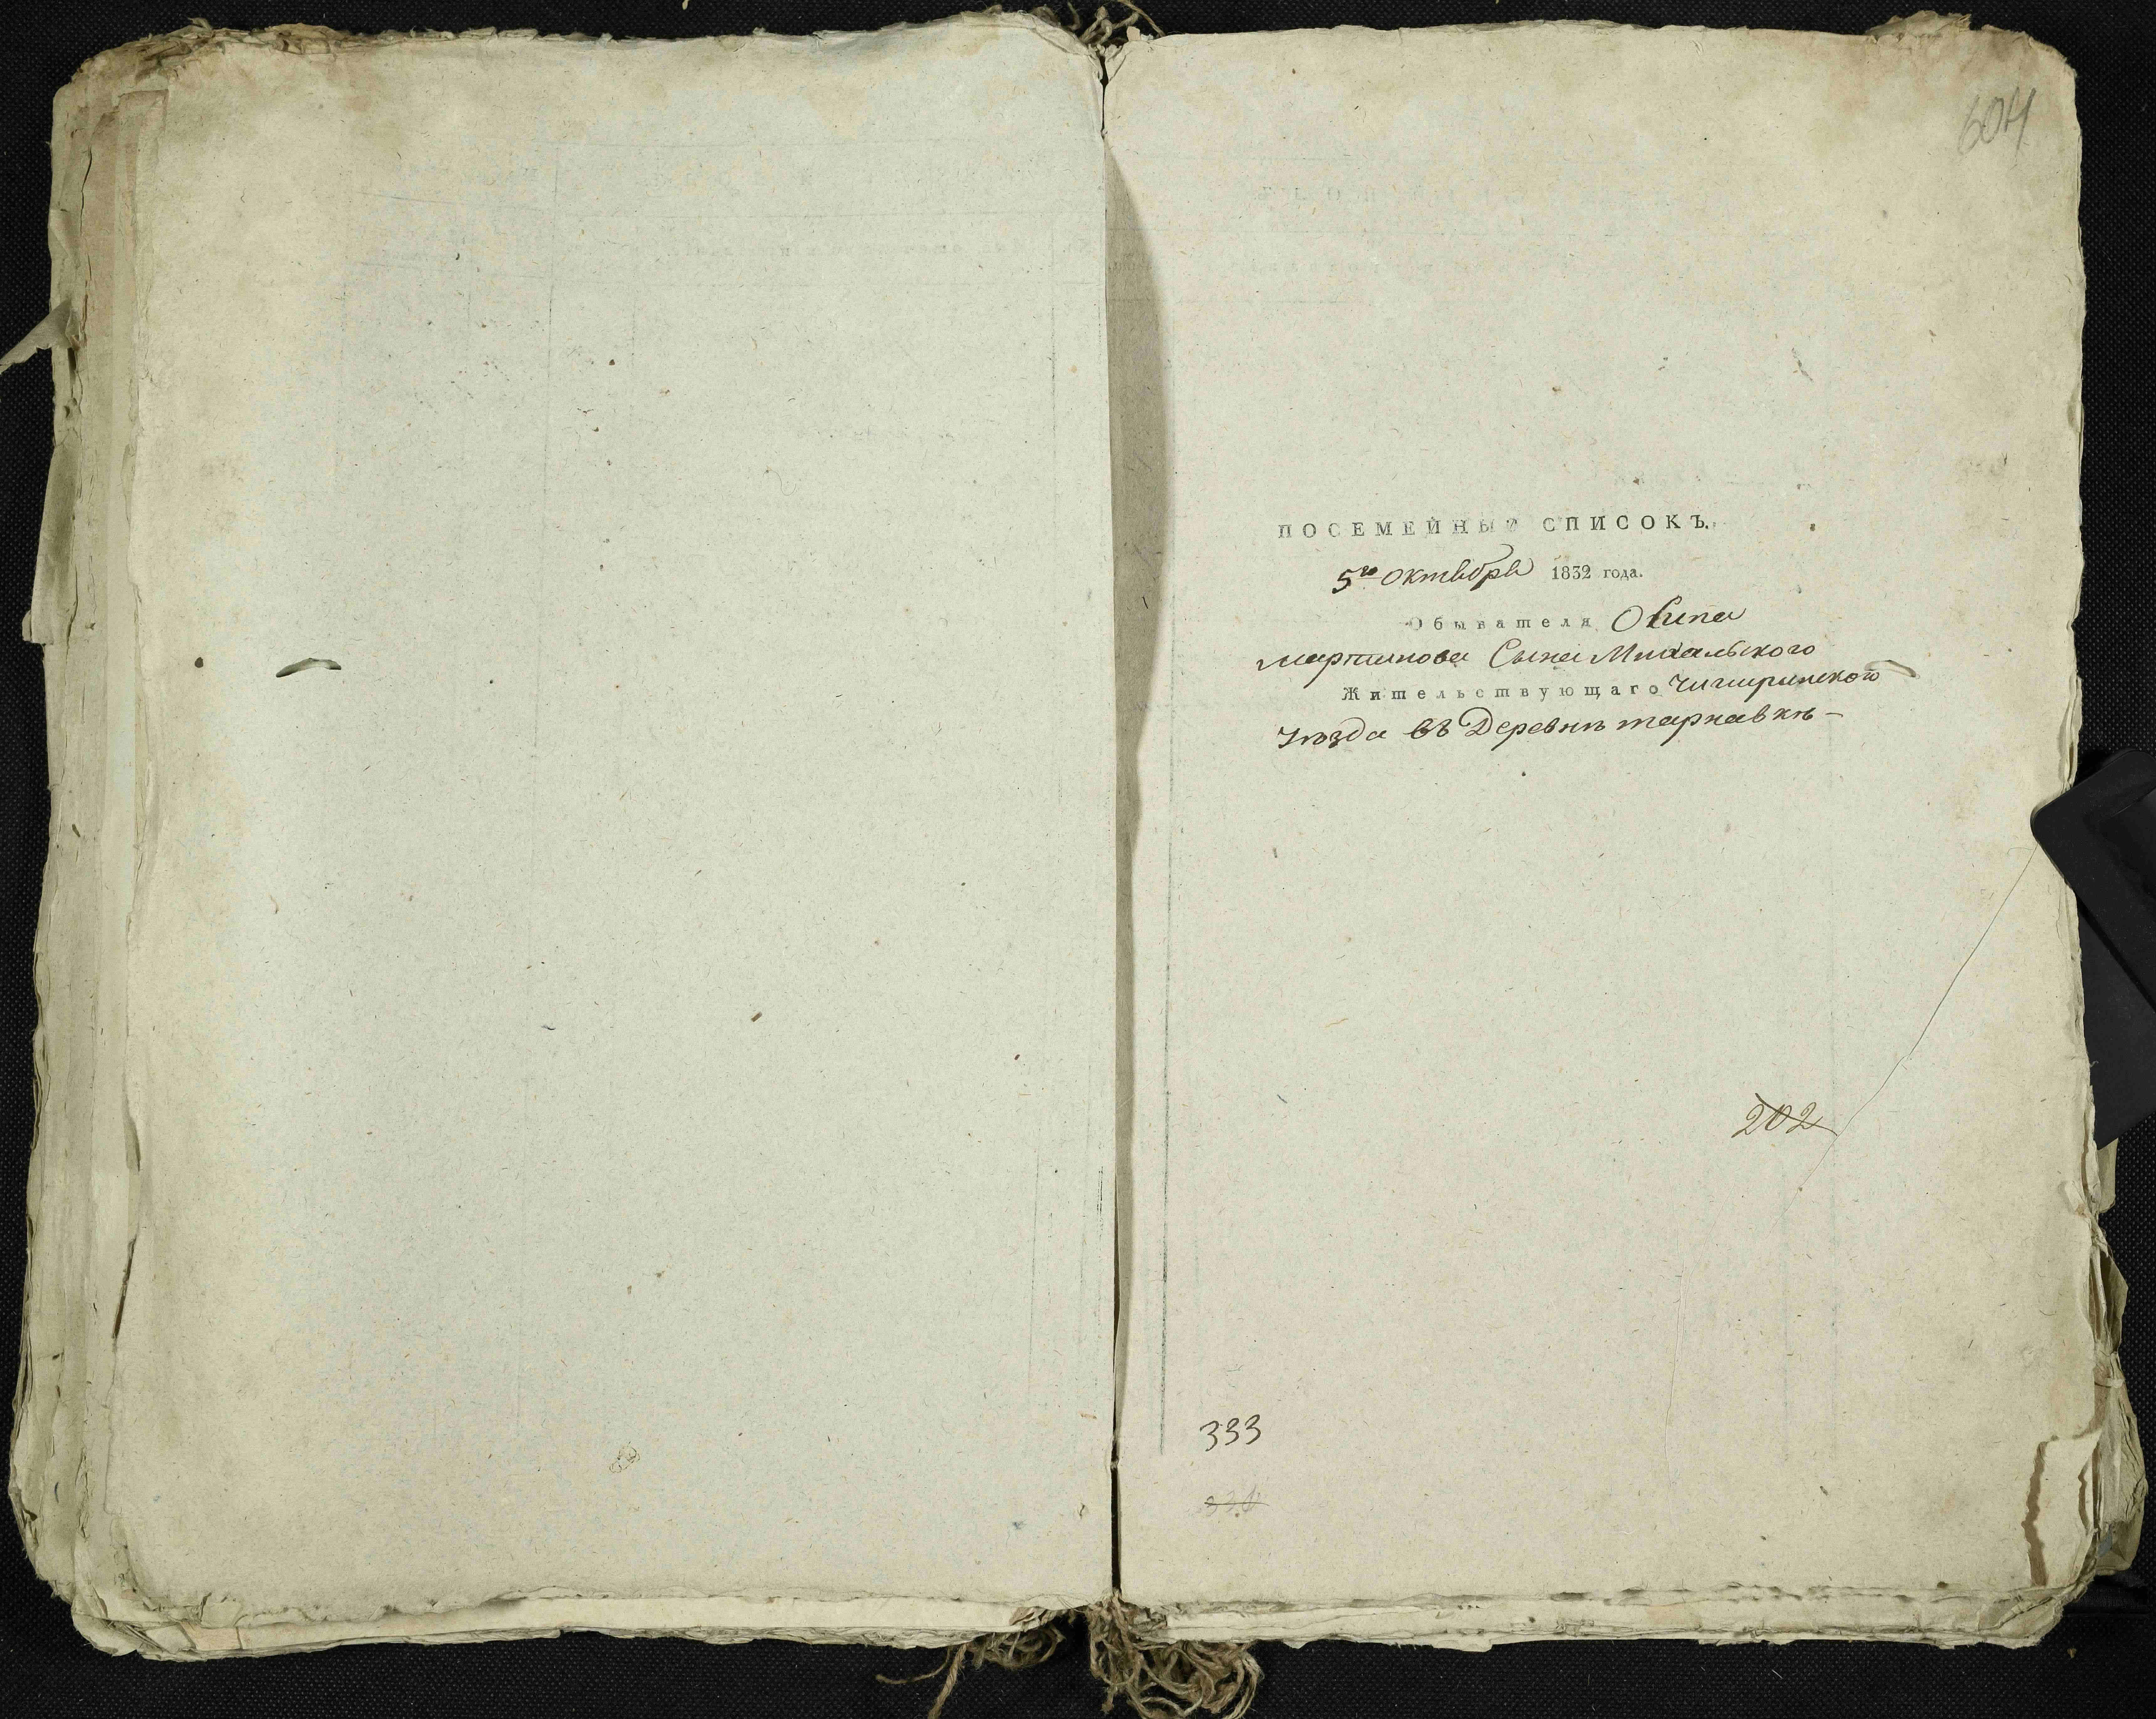 604
ПОСЕМЕЙНЫЙ СПИСОКЪ.
5го Октября 1832 года.
Обывателя Осипа
мартинова Сына Михальского
Жительствующаго Чигиринского
Уѣзда въ Деревнѣ тарнавкѣ –
202
333